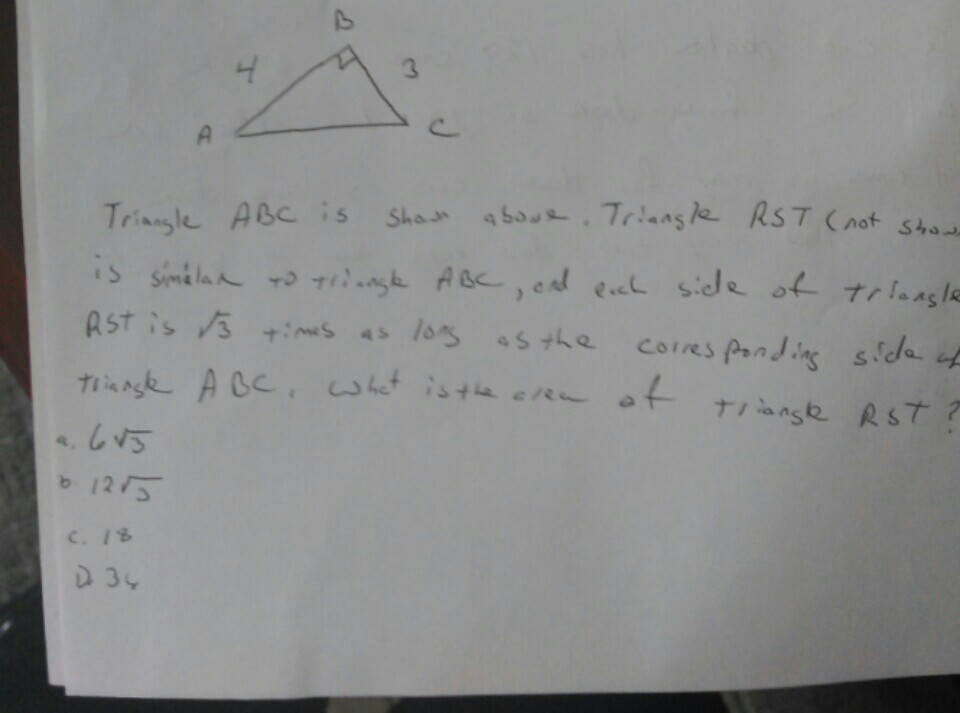 B
4
3
A
C
Triangle ABC is shown above. Triangle RST (not show
is similar to triangle ABC, and each side of triangle
RST is √3 times as long as the corresponding side of
triangle ABC. What is the area of triangle RST?
a. 6√3
b. 12√3
c. 18
D. 36